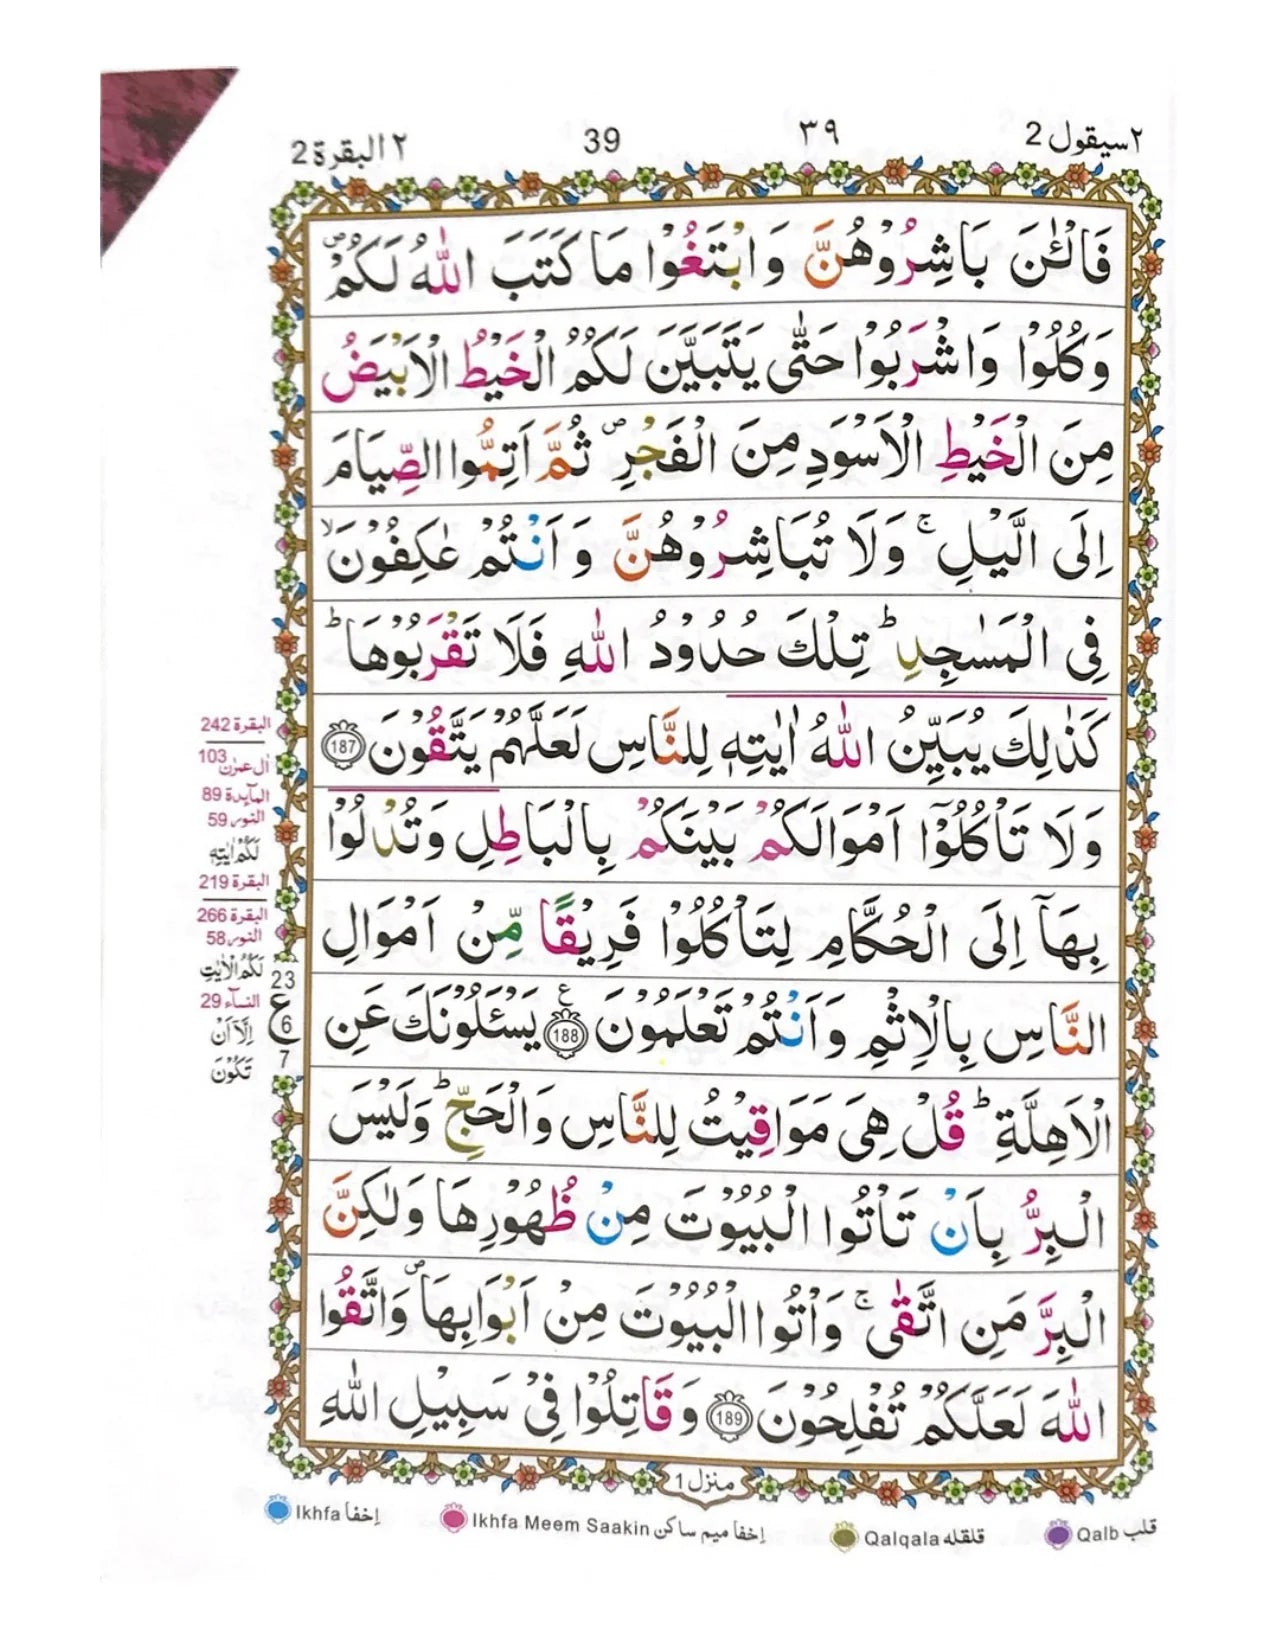 ٢ سيقول 2
٣٩
39
٢ البقرة 2
فَالْـٰٔنَ بَاشِرُوْهُنَّ وَابْتَغُوْا مَا كَتَبَ اللّٰهُ لَكُمْ ۪
وَكُلُوْا وَاشْرَبُوْا حَتّٰى يَتَبَيَّنَ لَكُمُ الْخَيْطُ الْاَبْيَضُ
مِنَ الْخَيْطِ الْاَسْوَدِ مِنَ الْفَجْرِ ۪ ثُمَّ اَتِمُّوا الصِّيَامَ
اِلَى الَّيْلِ ۚ وَلَا تُبَاشِرُوْهُنَّ وَاَنْتُمْ عٰكِفُوْنَ ۙ
فِى الْمَسٰجِدِ ؕ تِلْكَ حُدُوْدُ اللّٰهِ فَلَا تَقْرَبُوْهَا ؕ
كَذٰلِكَ يُبَيِّنُ اللّٰهُ اٰيٰتِهٖ لِلنَّاسِ لَعَلَّهُمْ يَتَّقُوْنَ 187
وَلَا تَاْكُلُوْٓا اَمْوَالَكُمْ بَيْنَكُمْ بِالْبَاطِلِ وَتُدْلُوْا
بِهَآ اِلَى الْحُكَّامِ لِتَاْكُلُوْا فَرِيْقًا مِّنْ اَمْوَالِ
النَّاسِ بِالْاِثْمِ وَاَنْتُمْ تَعْلَمُوْنَ 188 ع يَسْـَٔلُوْنَكَ عَنِ
الْاَهِلَّةِ ؕ قُلْ هِىَ مَوَاقِيْتُ لِلنَّاسِ وَالْحَجِّ ؕ وَلَيْسَ
الْبِرُّ بِاَنْ تَاْتُوا الْبُيُوْتَ مِنْ ظُهُوْرِهَا وَلٰكِنَّ
الْبِرَّ مَنِ اتَّقٰى ۚ وَاْتُوا الْبُيُوْتَ مِنْ اَبْوَابِهَا ۪ وَاتَّقُوا
اللّٰهَ لَعَلَّكُمْ تُفْلِحُوْنَ 189 وَقَاتِلُوْا فِىْ سَبِيْلِ اللّٰهِ
البقرة 242
اٰل عمرٰن 103
المآىِٕدة 89
النور 59
لَكُمْ اٰيٰتِهٖ
البقرة 219
البقرة 266
النور 58
لَكُمُ الْاٰيٰتِ
النسآء 29
اِلَّآ اَنْ
تَكُوْنَ
23
ع
6
7
منزل 1
Ikhfa إخفا
Ikhfa Meem Saakin إخفا ميم ساكن
Qalqala قلقله
Qalb قلب